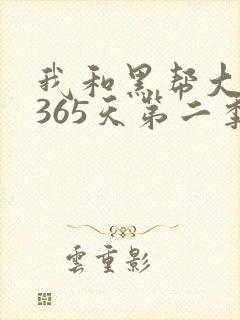 我和黑帮大
365天第二季
雲重影